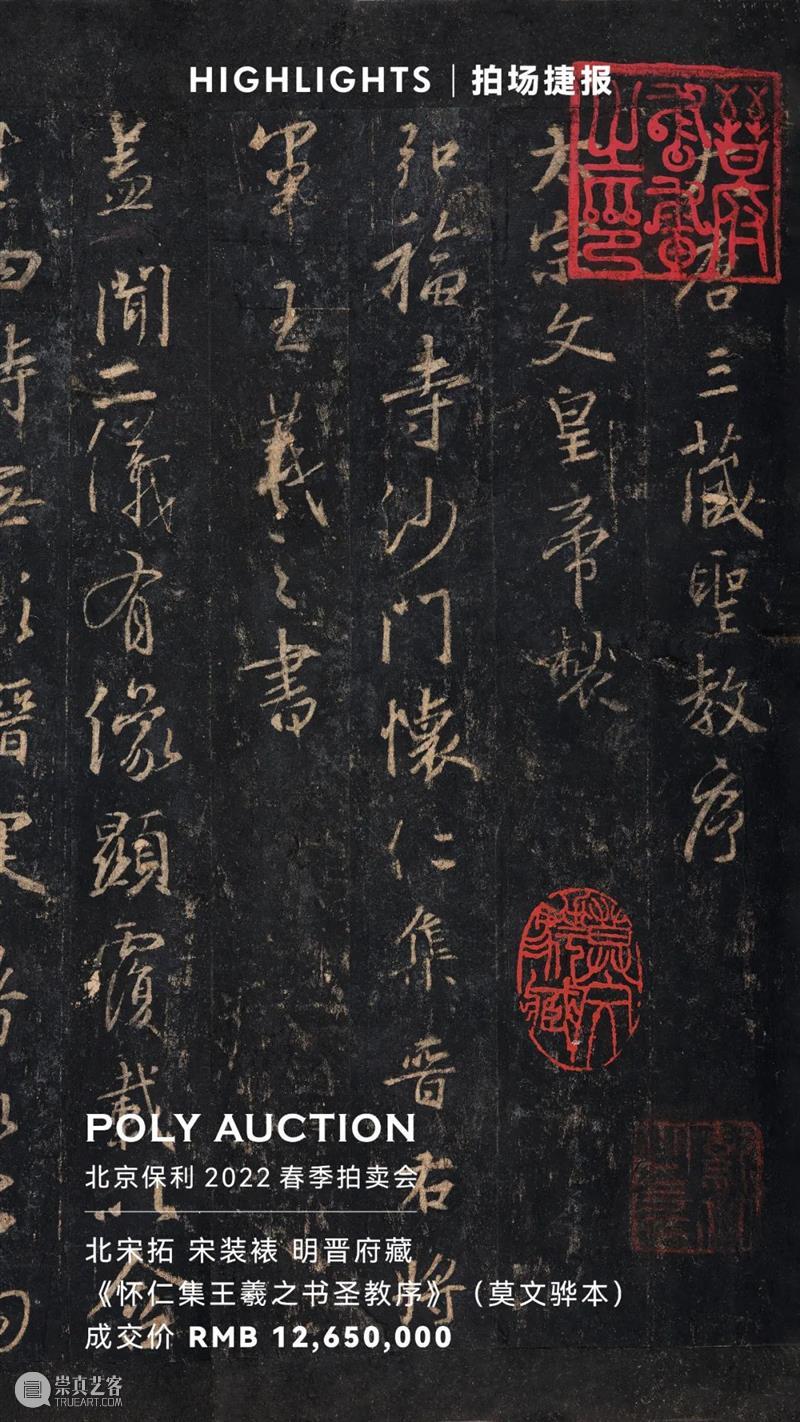 HIGHLIGHTS | 拍场捷报
晉府書畫之印
唐三藏聖教序
太宗文皇帝製
弘福寺沙門懷仁集晉右將
軍王羲之書
蓋聞二儀有像顯覆載以含
POLY AUCTION
北京保利 2022 春季拍卖会
北宋拓 宋装裱 明晋府藏
《怀仁集王羲之书圣教序》（莫文骅本）
成交价 RMB 12,650,000
崇真艺客
TRUEART.COM